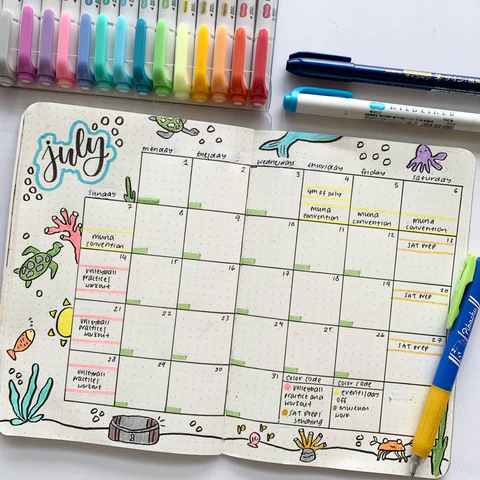 july
monday
tuesday
wednesday
thursday
friday
saturday
sunday
1
2
3
4
4th of july
muna
convention
5
muna
convention
6
muna
convention
7
muna
convention
8
9
10
11
12
13
SAT PREP
14
volleyball
practice/
workout
15
16
17
18
19
20
SAT PREP
21
volleyball
practice/
workout
22
23
24
25
26
27
SAT PREP
28
volleyball
practice/
workout
29
30
31
color code
volleyball
practice and
workout
SAT PREP/
studying
color code
events/day
off
museum
work
MILDLINER